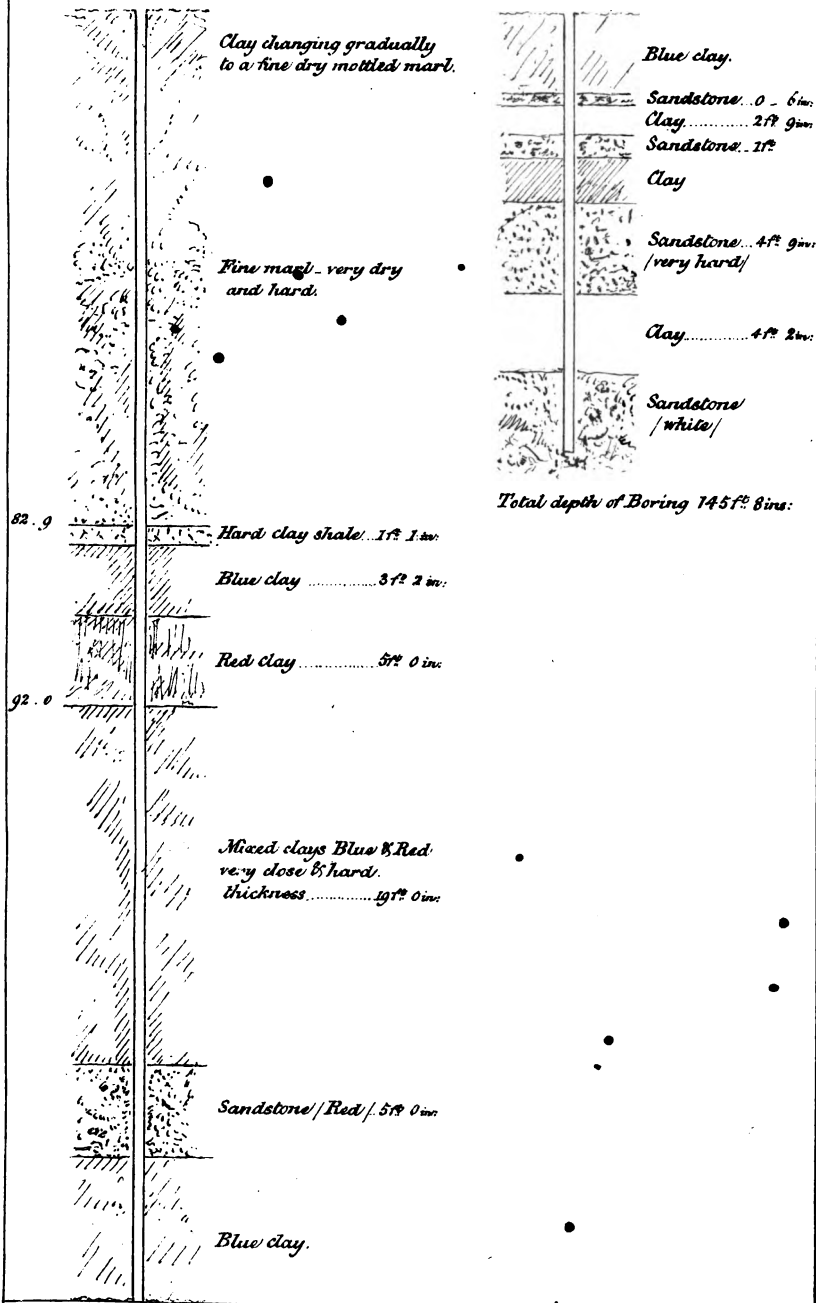 Clay changing gradually
to a fine dry mottled marl.
Fine marl - very dry
and hard.
82.9
Hard clay shale...1ft 1in:
Blue clay ............ 3ft 2in:
Red clay ............ 5ft 0in:
92.0
Mixed clays Blue & Red
very close & hard.
thickness ............ 19ft 0in:
Sandstone /Red/. 5ft 0in:
Blue clay.
Blue clay.
Sandstone...0 - 6in:
Clay .......... 2ft 9in:
Sandstone.. 1ft
Clay
Sandstone...4ft 9in:
/very hard/
Clay .......... 4ft 2in:
Sandstone
/white/
Total depth of Boring 145ft 8ins: